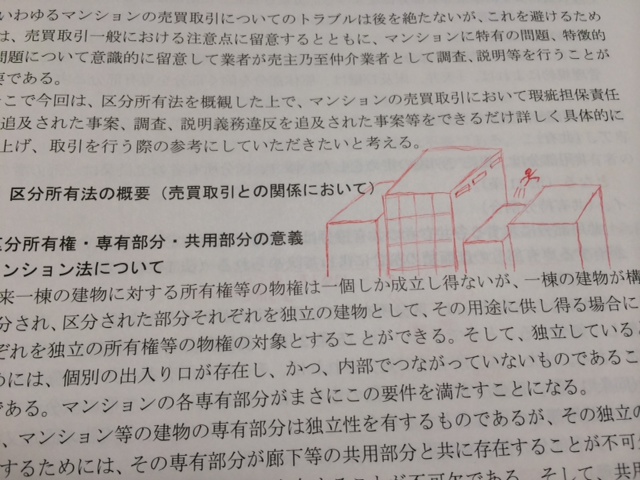 いわゆるマンションの売買取引についてのトラブルは後を絶たないが、これを避けるため
は、売買取引一般における注意点に留意するとともに、マンションに特有の問題、特徴的
問題について意識的に留意して業者が売主乃至仲介業者として調査、説明等を行うことが
要である。
こで今回は、区分所有法を概観した上で、マンションの売買取引において瑕疵担保責任
追及された事案、調査、説明義務違反を追及された事案等をできるだけ詳しく具体的に
上げ、取引を行う際の参考にしていただきたいと考える。
区分所有法の概要（売買取引との関係において）
区分所有権・専有部分・共用部分の意義
マンション法について
来一棟の建物に対する所有権等の物権は一個しか成立し得ないが、一棟の建物が構
分され、区分された部分それぞれを独立の建物として、その用途に供し得る場合に
ぞれを独立の所有権等の物権の対象とすることができる。そして、独立している
めには、個別の出入り口が存在し、かつ、内部でつながっていないものであるこ
である。マンションの各専有部分がまさにこの要件を満たすことになる。
、マンション等の建物の専有部分は独立性を有するものであるが、その独立の
するためには、その専有部分が廊下等の共用部分と共に存在することが不可
ることが不可欠である。そして、共用